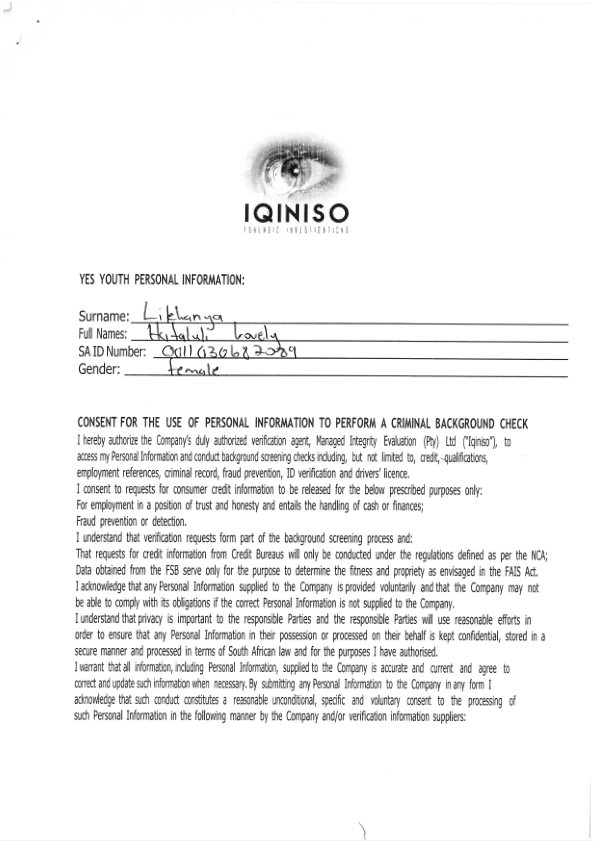 IQINISO
FORENSIC INVESTIGATIONS
YES YOUTH PERSONAL INFORMATION:
Surname: Likhanya
Full Names: Lovely
SA ID Number:
Gender: female
CONSENT FOR THE USE OF PERSONAL INFORMATION TO PERFORM A CRIMINAL BACKGROUND CHECK
I hereby authorize the Company's duly authorized verification agent, Managed Integrity Evaluation (Pty) Ltd ("Iqiniso"), to
access my Personal Information and conduct background screening checks including, but not limited to, credit, qualifications,
employment references, criminal record, fraud prevention, ID verification and drivers' licence.
I consent to requests for consumer credit information to be released for the below prescribed purposes only:
For employment in a position of trust and honesty and entails the handling of cash or finances;
Fraud prevention or detection.
I understand that verification requests form part of the background screening process and:
That requests for credit information from Credit Bureaus will only be conducted under the regulations defined as per the NCA;
Data obtained from the FSB serve only for the purpose to determine the fitness and propriety as envisaged in the FAIS Act.
I acknowledge that any Personal Information supplied to the Company is provided voluntarily and that the Company may not
be able to comply with its obligations if the correct Personal Information is not supplied to the Company.
I understand that privacy is important to the responsible Parties and the responsible Parties will use reasonable efforts in
order to ensure that any Personal Information in their possession or processed on their behalf is kept confidential, stored in a
secure manner and processed in terms of South African law and for the purposes I have authorised.
I warrant that all information, including Personal Information, supplied to the Company is accurate and current and agree to
correct and update such information when necessary. By submitting any Personal Information to the Company in any form I
acknowledge that such conduct constitutes a reasonable unconditional, specific and voluntary consent to the processing of
such Personal Information in the following manner by the Company and/or verification information suppliers: